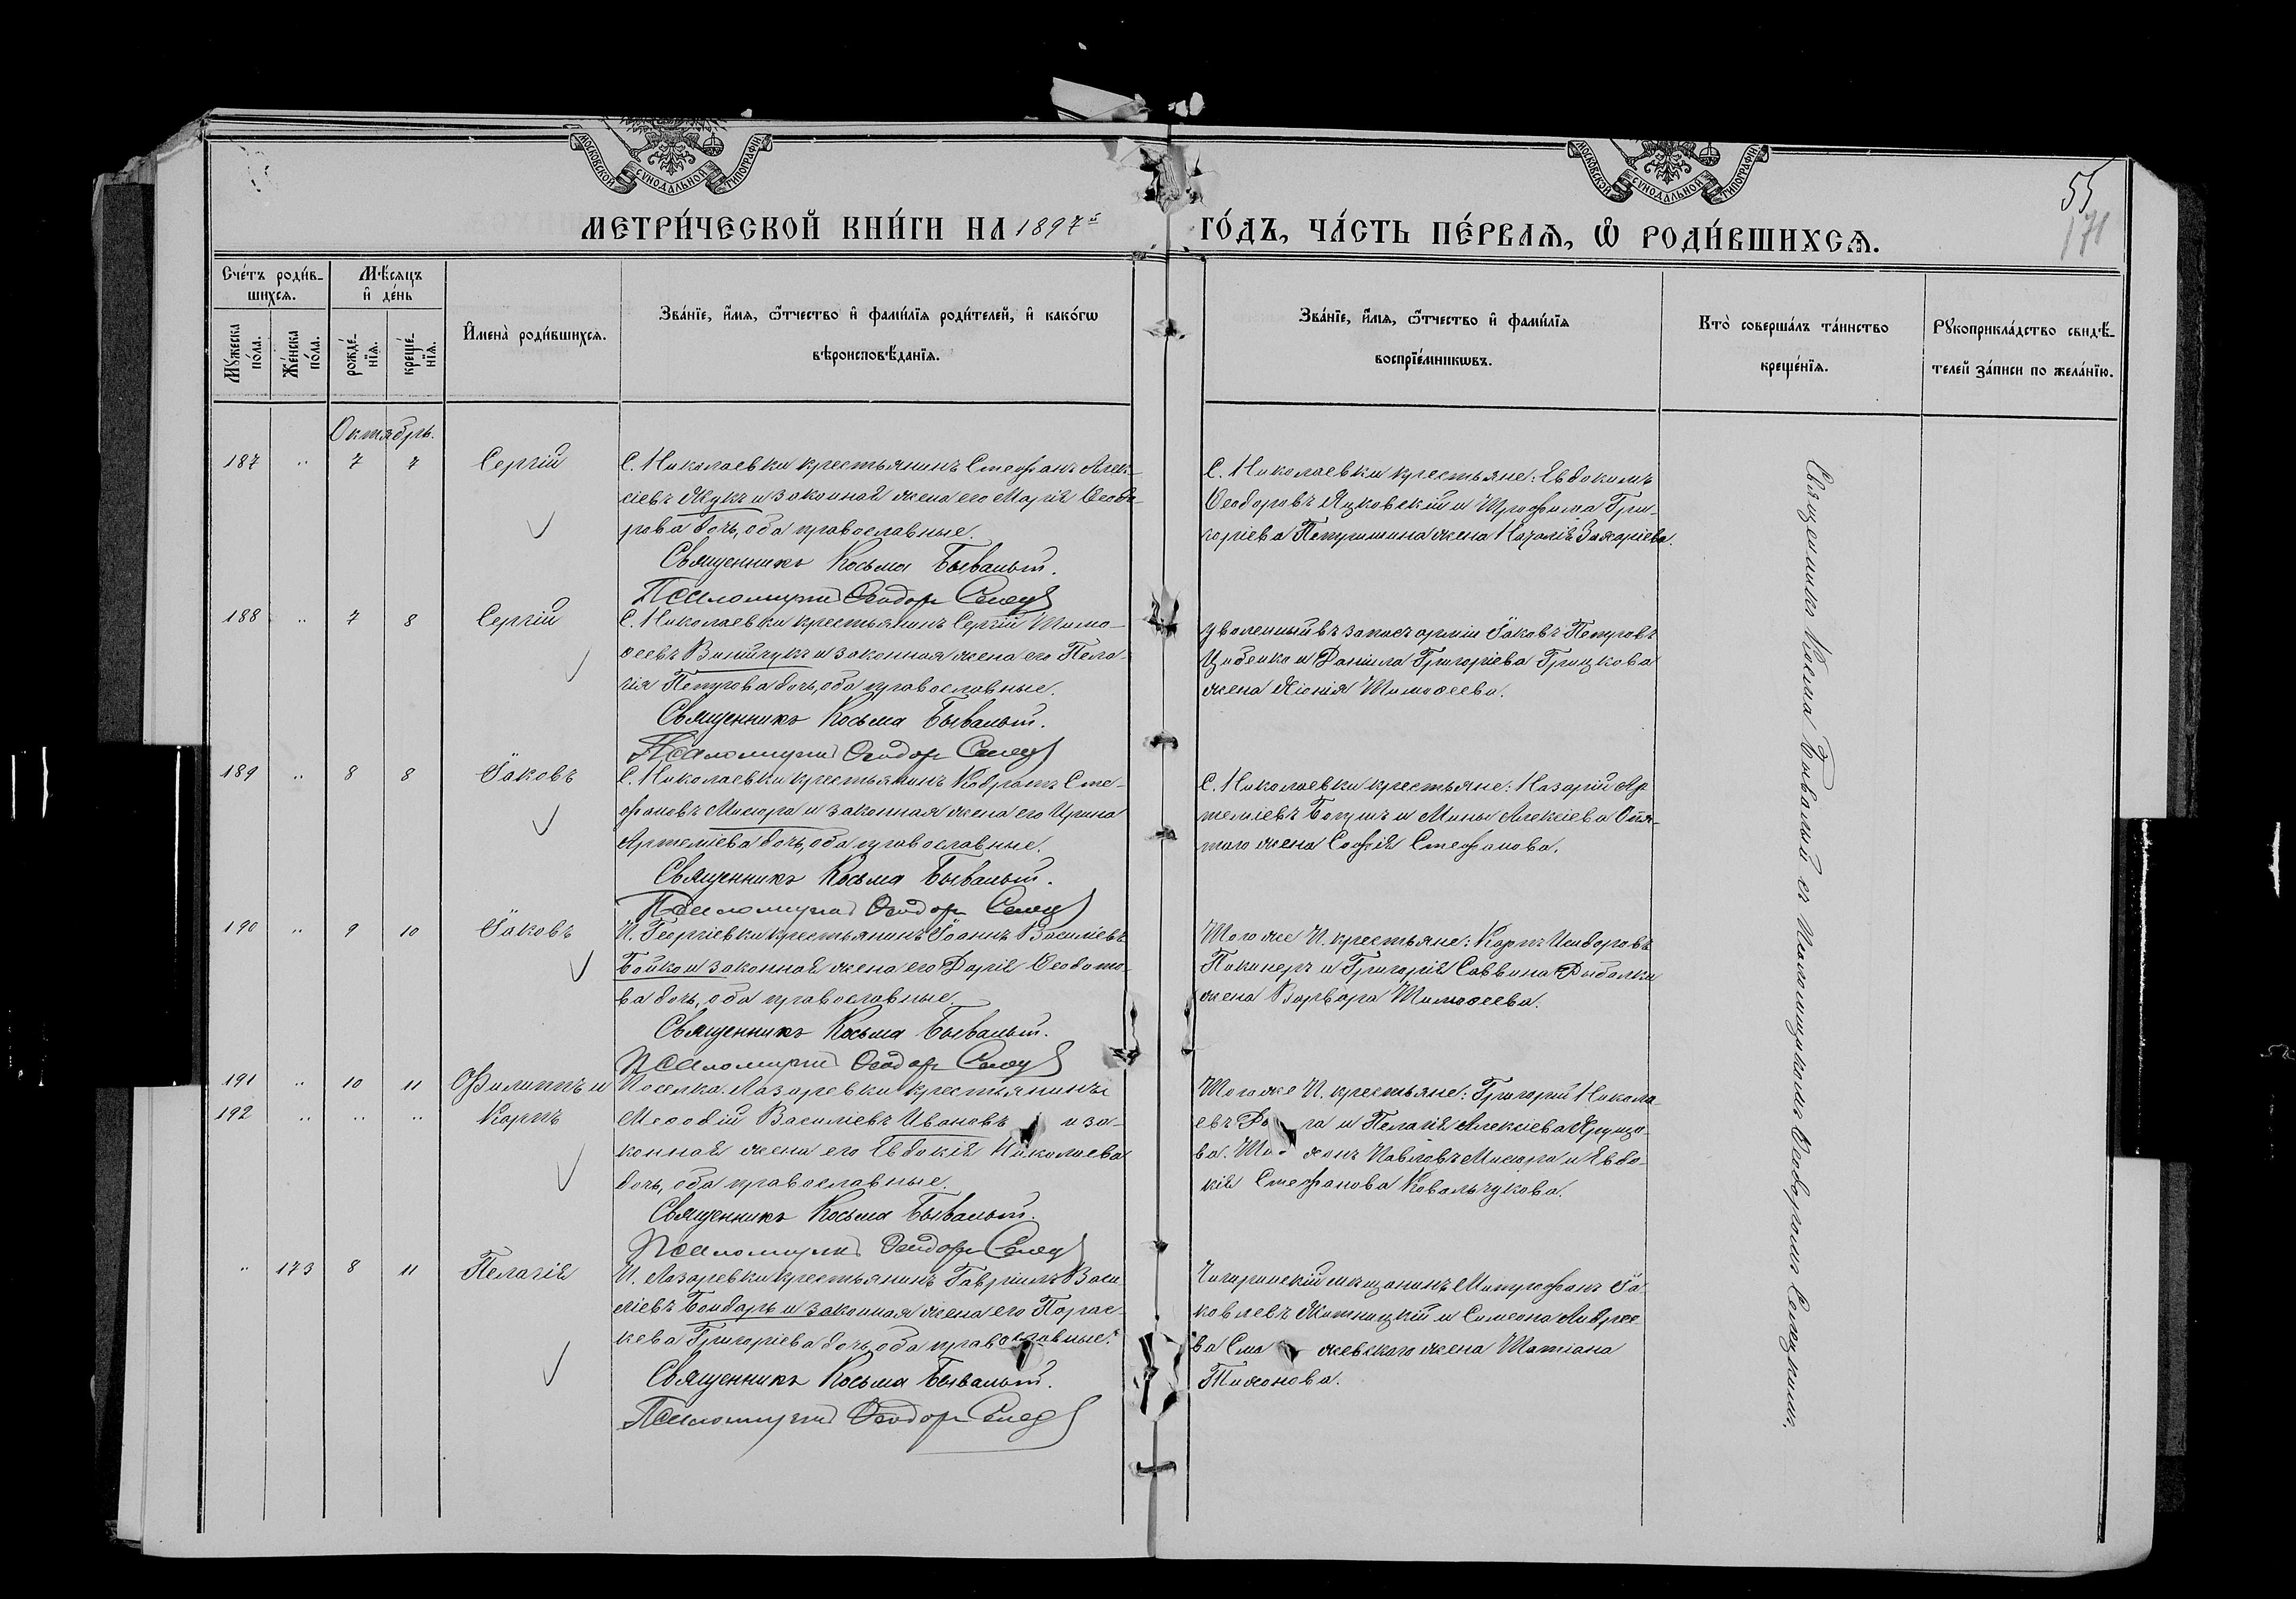 МОСКОВСКОЙ СѴНОДАЛЬНОЙ ТИПОГРАФІИ
МОСКОВСКОЙ СѴНОДАЛЬНОЙ ТИПОГРАФІИ
55
171
МЕТРИ́ЧЕСКОЙ КНИ́ГИ НА 1897й ГО́ДЪ, ЧА́СТЬ ПЕ́РВАѦ, Ѡ РОДИ́ВШИХСѦ.
Сче́тъ роди́в-
шихсѧ.
Мѣ́сѧцъ
и҆ де́нь
Мꙋ́жеска
по́ла.
Же́нска
по́ла.
рожде́-
нїѧ.
креще́-
нїѧ.
И҆мена̀ роди́вшихсѧ.
Зва́нїе, и҆́мѧ, ѻ҆́тчество и҆ фами́лїѧ роди́телей, и҆ како́гѡ
вѣроисповѣ́данїѧ.
Зва́нїе, и҆́мѧ, ѻ҆́тчество и҆ фами́лїѧ
воспрїе́мникѡвъ.
Кто̀ соверша́лъ та́инство
креще́нїѧ.
Рꙋкоприкла́дство свидѣ́-
телей за́писи по жела́нїю.
Октябрь.
187 .. 7 7 Сергій
С. Николаевки крестьянинъ Стефанъ Алек-
сіевъ Жукъ и законная жена его Марія Ѳеодо-
рова дочь, оба православные.
Священникъ Косьма Бывалый.
Псаломщикъ Ѳеодоръ
С. Николаевки крестьяне: Евдокимъ
Ѳеодоровъ Яцковскій и Трофима Гри-
горіева жена Наталія Захаріева.
188 .. 7 8 Сергій
С. Николаевки крестьянинъ Сергій Тимо-
ѳеевъ Винничукъ и законная жена его Пела-
гія Петрова дочь, оба православные.
Священникъ Косьма Бывалый.
Псаломщикъ Ѳеодоръ
Уволенный въ запасъ арміи Іаковъ Петровъ
Цибенко и Даніила Григоріева Грицкова
жена Тимоѳеева.
189 .. 8 8 Іаковъ
С. Николаевки крестьянинъ Кодратъ Сте-
фановъ Мисюра и законная жена его Ирина
Артеміева дочь, оба православные.
Священникъ Косьма Бывалый.
Псаломщикъ Ѳеодоръ
С. Николаевки крестьяне: Назарій Ар-
теміевъ и Мины Алексіева
жена Софія Стефанова.
190 .. 9 10 Іаковъ
П. Георгіевки крестьянинъ Іоаннъ Василіевъ
Бойко и законная жена его Дарія Ѳеодото-
ва дочь, оба православные.
Священникъ Косьма Бывалый.
Псаломщикъ Ѳеодоръ
Того же П. крестьяне: Карпъ Исидоровъ
Пикинеръ и Григорія Саввина Рыбалки
жена Варвара Тимоѳеева.
191 .. 10 11 Филиппъ и
192 .. .. .. Карпъ
Поселка Лазаревки крестьянинъ
Меѳодій Василіевъ Ивановъ и за-
конная жена его Евдокія Николаева
дочь, оба православные.
Священникъ Косьма Бывалый.
Псаломщикъ Ѳеодоръ
Того же П. крестьяне: Григорій Никола-
евъ и Пелагія Алексіева
Павловъ Мисюра и Евдо-
кія Стефанова Ковальчукова.
.. 173 8 11 Пелагія
П. Лазаревки крестьянинъ Гавріилъ Васи-
ліевъ Бондарь и законная жена его Парас-
кева Григоріева дочь, оба православные.
Священникъ Косьма Бывалый.
Псаломщикъ Ѳеодоръ
Чигиринскій мѣщанинъ Митрофанъ Іа-
ковлевъ Житницкій и Симеона Андрее-
ва жена Татіана
Тихонова.
Священникъ Косма Бывалый съ Псаломщикомъ Ѳеодоромъ